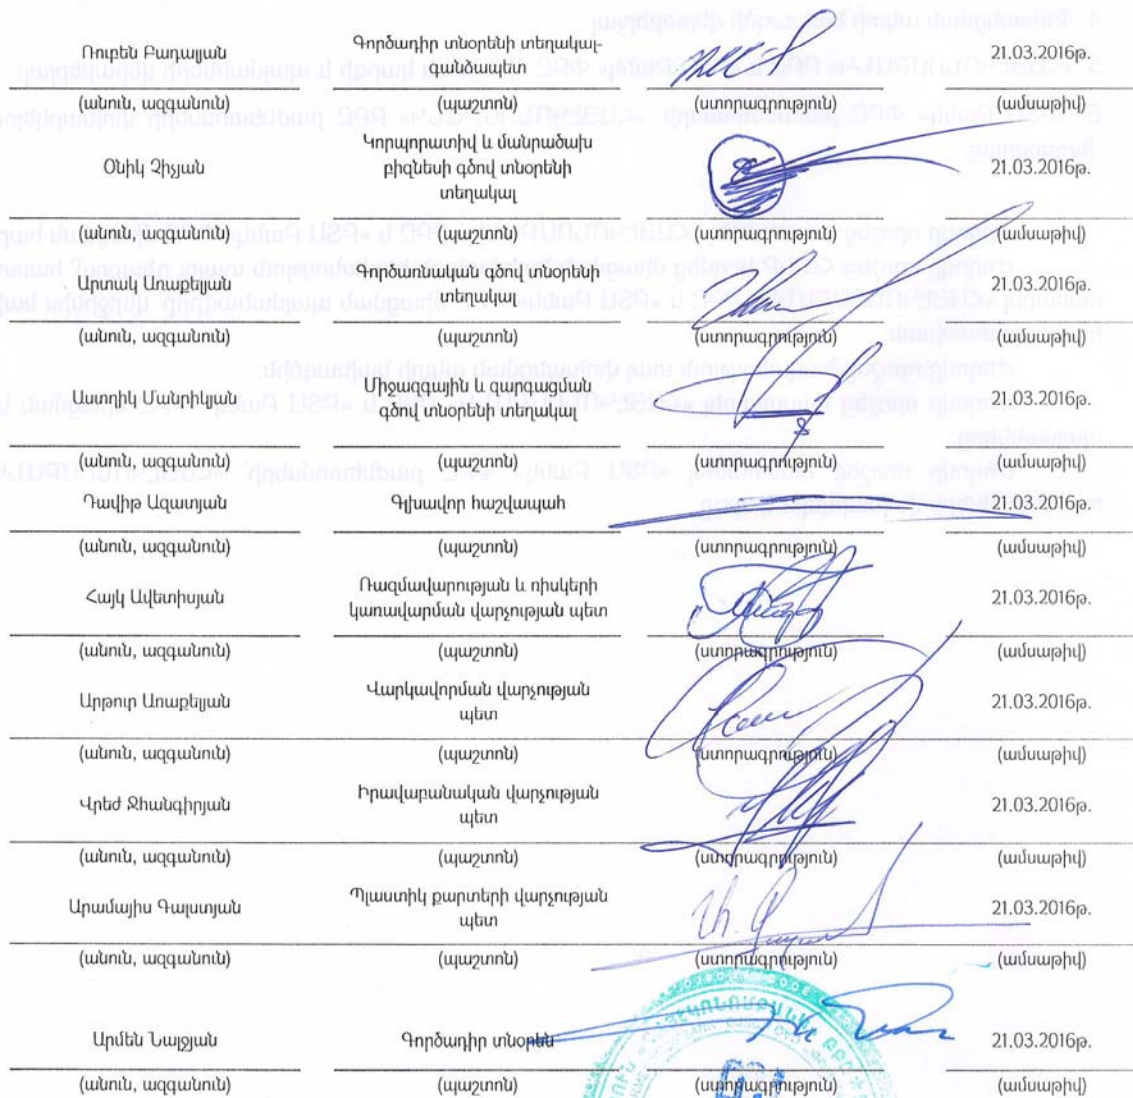 Ռուբեն Բադալյան
Գործադիր տնօրենի տեղակալ-
գանձապետ
21.03.2016թ.
(անուն, ազգանուն) (պաշտոն) (ստորագրություն) (ամսաթիվ)
Օնիկ Չիչյան
Կորպորատիվ և մանրածախ
բիզնեսի գծով տնօրենի
տեղակալ
21.03.2016թ.
(անուն, ազգանուն) (պաշտոն) (ստորագրություն) (ամսաթիվ)
Արտակ Առաքելյան
Գործառնական գծով տնօրենի
տեղակալ
21.03.2016թ.
(անուն, ազգանուն) (պաշտոն) (ստորագրություն) (ամսաթիվ)
Աստղիկ Մանրիկյան
Միջազգային և զարգացման
գծով տնօրենի տեղակալ
21.03.2016թ.
(անուն, ազգանուն) (պաշտոն) (ստորագրություն) (ամսաթիվ)
Դավիթ Ազատյան Գլխավոր հաշվապահ 21.03.2016թ.
(անուն, ազգանուն) (պաշտոն) (ստորագրություն) (ամսաթիվ)
Հայկ Ավետիսյան
Ռազմավարության և ռիսկերի
կառավարման վարչության պետ
21.03.2016թ.
(անուն, ազգանուն) (պաշտոն) (ստորագրություն) (ամսաթիվ)
Արթուր Առաքելյան
Վարկավորման վարչության
պետ
21.03.2016թ.
(անուն, ազգանուն) (պաշտոն) (ստորագրություն) (ամսաթիվ)
Վրեժ Ջհանգիրյան
Իրավաբանական վարչության
պետ
21.03.2016թ.
(անուն, ազգանուն) (պաշտոն) (ստորագրություն) (ամսաթիվ)
Արամայիս Գալստյան
Պլաստիկ քարտերի վարչության
պետ
21.03.2016թ.
(անուն, ազգանուն) (պաշտոն) (ստորագրություն) (ամսաթիվ)
Արմեն Նալջյան Գործադիր տնօրեն 21.03.2016թ.
(անուն, ազգանուն) (պաշտոն) (ստորագրություն) (ամսաթիվ)